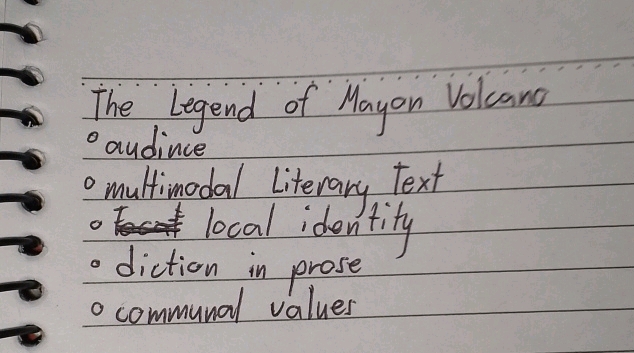 The Legend of Mayon Volcano
° audince
° multimodal Literary Text
° local identity
° diction in prose
° communal values